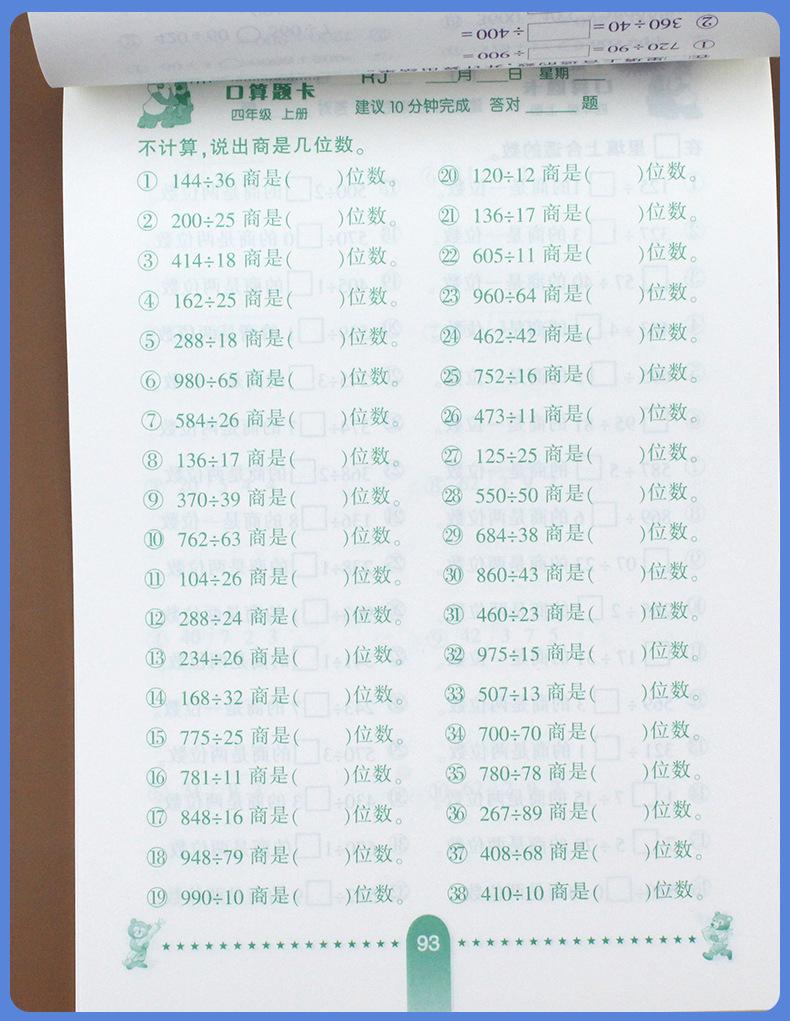 ② 360÷40= ÷400=
① 720÷90= ÷900=
口算题卡
四年级 上册
RJ 月 日 星期
建议10分钟完成 答对 题
不计算,说出商是几位数。
① 144÷36 商是( )位数。
② 200÷25 商是( )位数。
③ 414÷18 商是( )位数。
④ 162÷25 商是( )位数。
⑤ 288÷18 商是( )位数。
⑥ 980÷65 商是( )位数。
⑦ 584÷26 商是( )位数。
⑧ 136÷17 商是( )位数。
⑨ 370÷39 商是( )位数。
⑩ 762÷63 商是( )位数。
⑪ 104÷26 商是( )位数。
⑫ 288÷24 商是( )位数。
⑬ 234÷26 商是( )位数。
⑭ 168÷32 商是( )位数。
⑮ 775÷25 商是( )位数。
⑯ 781÷11 商是( )位数。
⑰ 848÷16 商是( )位数。
⑱ 948÷79 商是( )位数。
⑲ 990÷10 商是( )位数。
⑳ 120÷12 商是( )位数。
㉑ 136÷17 商是( )位数。
㉒ 605÷11 商是( )位数。
㉓ 960÷64 商是( )位数。
㉔ 462÷42 商是( )位数。
㉕ 752÷16 商是( )位数。
㉖ 473÷11 商是( )位数。
㉗ 125÷25 商是( )位数。
㉘ 550÷50 商是( )位数。
㉙ 684÷38 商是( )位数。
㉚ 860÷43 商是( )位数。
㉛ 460÷23 商是( )位数。
㉜ 975÷15 商是( )位数。
㉝ 507÷13 商是( )位数。
㉞ 700÷70 商是( )位数。
㉟ 780÷78 商是( )位数。
㊱ 267÷89 商是( )位数。
㊲ 408÷68 商是( )位数。
㊳ 410÷10 商是( )位数。
93